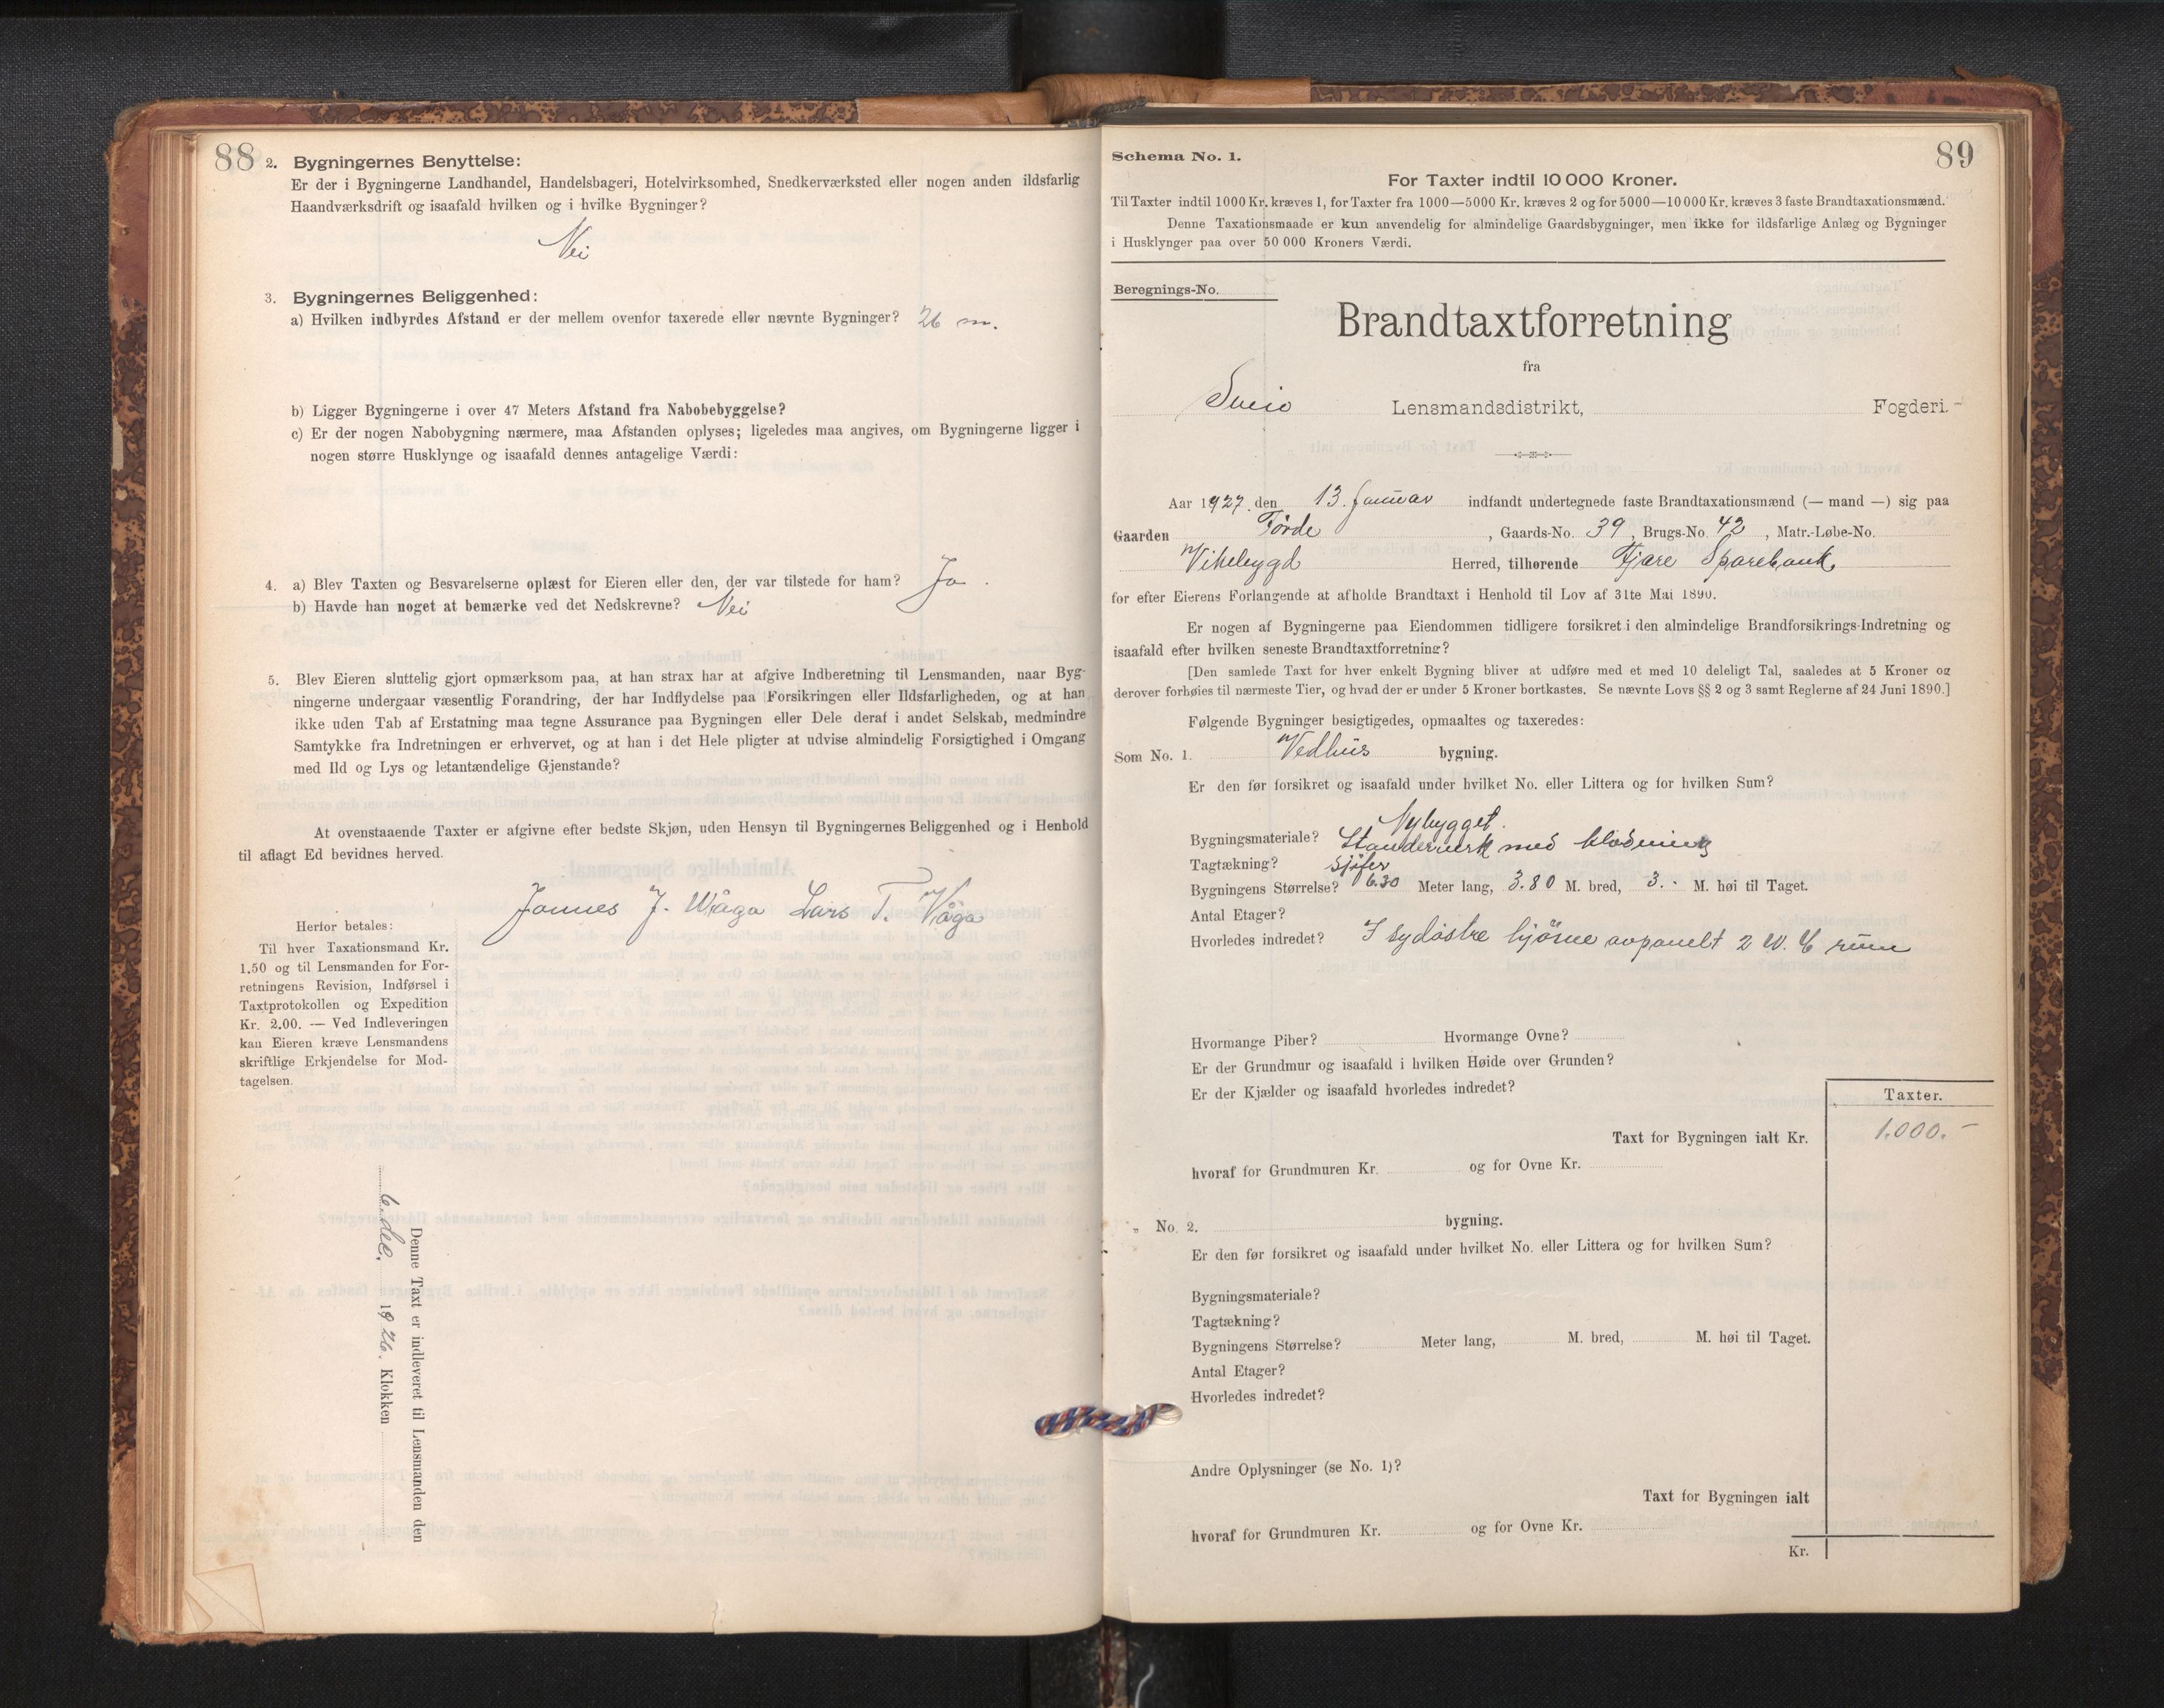 88
2. Bygningernes Benyttelse:
Er der i Bygningerne Landhandel, Handelsbageri, Hotelvirksomhed, Snedkerværksted eller nogen anden ildsfarlig
Haandværksdrift og isaafald hvilken og i hvilke Bygninger?
Nei
3. Bygningernes Beliggenhed:
a) Hvilken indbyrdes Afstand er der mellem ovenfor taxerede eller nævnte Bygninger? 26 m.
b) Ligger Bygningerne i over 47 Meters Afstand fra Nabobebyggelse?
c) Er der nogen Nabobygning nærmere, maa Afstanden oplyses; ligeledes maa angives, om Bygningerne ligger i
nogen større Husklynge og isaafald dennes antagelige Værdi:
4. a) Blev Taxten og Besvarelserne oplæst for Eieren eller den, der var tilstede for ham? Ja.
b) Havde han noget at bemærke ved det Nedskrevne? Nei
5. Blev Eieren sluttelig gjort opmærksom paa, at han strax har at afgive Indberetning til Lensmanden, naar Byg-
ningerne undergaar væsentlig Forandring, der har Indflydelse paa Forsikringen eller Ildsfarligheden, og at han
ikke uden Tab af Erstatning maa tegne Assurance paa Bygningen eller Dele deraf i andet Selskab, medmindre
Samtykke fra Indretningen er erhvervet, og at han i det Hele pligter at udvise almindelig Forsigtighed i Omgang
med Ild og Lys og letantændelige Gjenstande?
At ovenstaaende Taxter er afgivne efter bedste Skjøn, uden Hensyn til Bygningernes Beliggenhed og i Henhold
til aflagt Ed bevidnes herved.
Jannes J. Våga Lars T. Våga
Herfor betales:
Til hver Taxationsmand Kr.
1.50 og til Lensmanden for For-
retningens Revision, Indførsel i
Taxtprotokollen og Expedition
Kr. 2.00. — Ved Indleveringen
kan Eieren kræve Lensmandens
skriftlige Erkjendelse for Mod-
tagelsen.
Denne Taxt er indleveret til Lensmanden den
6. dec. 1926. Klokken
89
Schema No. 1.
For Taxter indtil 10 000 Kroner.
Til Taxter indtil 1000 Kr. kræves 1, for Taxter fra 1000—5000 Kr. kræves 2 og for 5000—10 000 Kr. kræves 3 faste Brandtaxationsmænd.
Denne Taxationsmaade er kun anvendelig for almindelige Gaardsbygninger, men ikke for ildsfarlige Anlæg og Bygninger
i Husklynger paa over 50 000 Kroners Værdi.
Beregnings-No.
Brandtaxtforretning
fra
Sveio Lensmandsdistrikt, Fogderi.
Aar 1927. den 13. Januar indfandt undertegnede faste Brandtaxationsmænd (— mand —) sig paa
Gaarden Førde, Gaards-No. 39, Brugs-No. 42, Matr.-Løbe-No.
Vikebygd Herred, tilhørende Fjære Sparebank
for efter Eierens Forlangende at afholde Brandtaxt i Henhold til Lov af 31te Mai 1890.
Er nogen af Bygningerne paa Eiendommen tidligere forsikret i den almindelige Brandforsikrings-Indretning og
isaafald efter hvilken seneste Brandtaxtforretning?
[Den samlede Taxt for hver enkelt Bygning bliver at udføre med et med 10 deleligt Tal, saaledes at 5 Kroner og
derover forhøies til nærmeste Tier, og hvad der er under 5 Kroner bortkastes. Se nævnte Lovs §§ 2 og 3 samt Reglerne af 24 Juni 1890.]
Følgende Bygninger besigtigedes, opmaaltes og taxeredes:
Som No. 1. Vedhus bygning.
Er den før forsikret og isaafald under hvilket No. eller Littera og for hvilken Sum?
Nybygget.
Bygningsmateriale? Standerverk med klædning
Tagtækning? Sjifer
Bygningens Størrelse? 6.30 Meter lang, 3.80 M. bred, 3. M. høi til Taget.
Antal Etager?
Hvorledes indredet? I sydøstre hjørne avpanelt 2 W.C rum
Hvormange Piber? Hvormange Ovne?
Er der Grundmur og isaafald i hvilken Høide over Grunden?
Er der Kjælder og isaafald hvorledes indredet?
Taxter.
Taxt for Bygningen ialt Kr. 1.000.-
hvoraf for Grundmuren Kr. og for Ovne Kr.
„ No. 2. bygning.
Er den før forsikret og isaafald under hvilket No. eller Littera og for hvilken Sum?
Bygningsmateriale?
Tagtækning?
Bygningens Størrelse? Meter lang, M. bred, M. høi til Taget.
Antal Etager?
Hvorledes indredet?
Andre Oplysninger (se No. 1)?
Taxt for Bygningen ialt
hvoraf for Grundmuren Kr. og for Ovne Kr.
Kr.